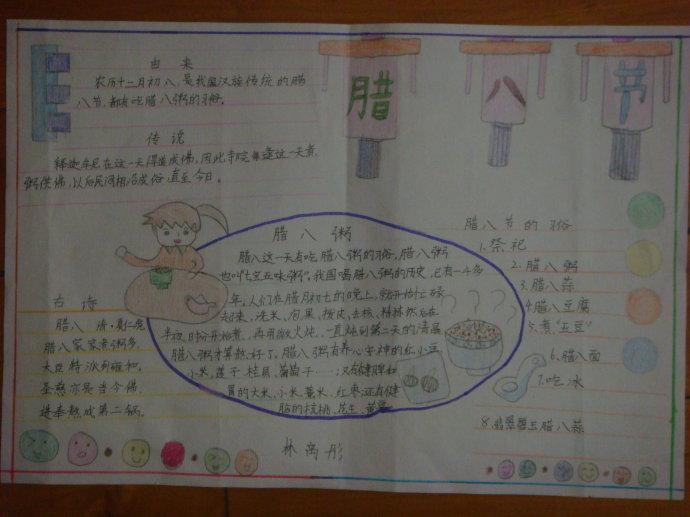 腊八节
由来
农历十二月初八,是我国汉族传统的腊
八节,都有吃腊八粥的习俗。
传说
释迦牟尼在这一天得道成佛,因此寺院每逢这一天煮
粥供佛,以后民间相沿成俗,直至今日。
腊八粥
腊八这一天有吃腊八粥的习俗,腊八粥
也叫"七宝五味粥"。我国喝腊八粥的历史,已有一千多
年。人们在腊月初七的晚上,就开始忙碌
起来,洗米、泡果、拨皮、去核、精拣然后在
半夜时分开始煮,再用微火炖,一直炖到第二天的清晨
腊八粥才算熬好了。腊八粥有养心安神的红小豆
小米、莲子、桂圆、葡萄干……
胃的大米、小米、薏米、红枣,还有健
脑的核桃、花生、黄
古诗
腊八 清·夏仁虎
腊八家家煮粥多,
大臣特派到雍和。
圣慈亦是当今佛,
进奉熬成第二锅。
腊八节的习俗
1.祭祀
2.腊八粥
3.腊八蒜
4.腊八豆腐
5.煮"五豆"
6.腊八面
7.吃冰
8.翡翠碧玉腊八蒜